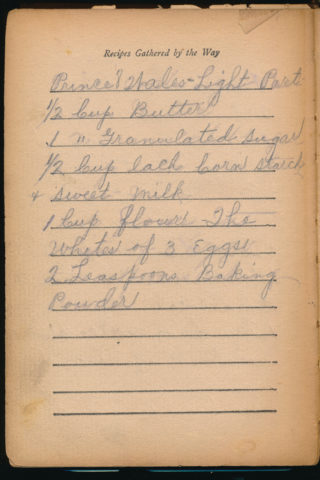 Recipes Gathered by the Way
Prince? Wales-Light Part
1/2 Cup Butter
1 " Granulated Sugar
1/2 Cup each Corn starch
& Sweet Milk
1 Cup flour The
Whites of 3 Eggs
2 Teaspoons Baking
Powder